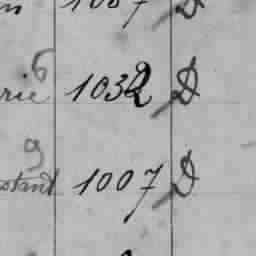 1007 D
6
rie 1032 D
9
stant 1007 D